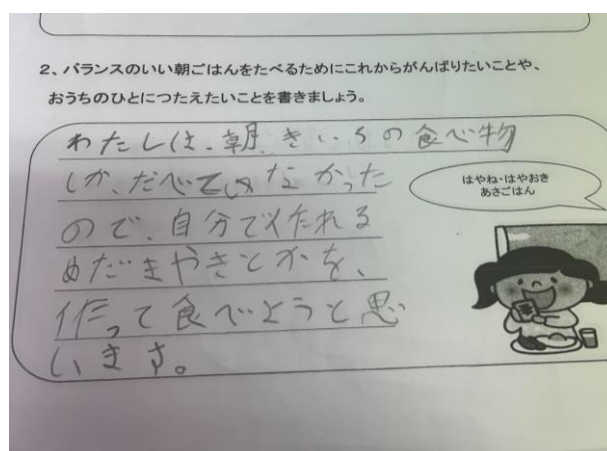 2、バランスのいい朝ごはんをたべるためにこれからがんばりたいことや、
おうちのひとにつたえたいことを書きましょう。
わたしは、朝、きいろの食べ物
しか、たべていなかった
ので、自分で作れる
めだまやきとかを、
作って食べようと思
います。
はやね・はやおき
あさごはん